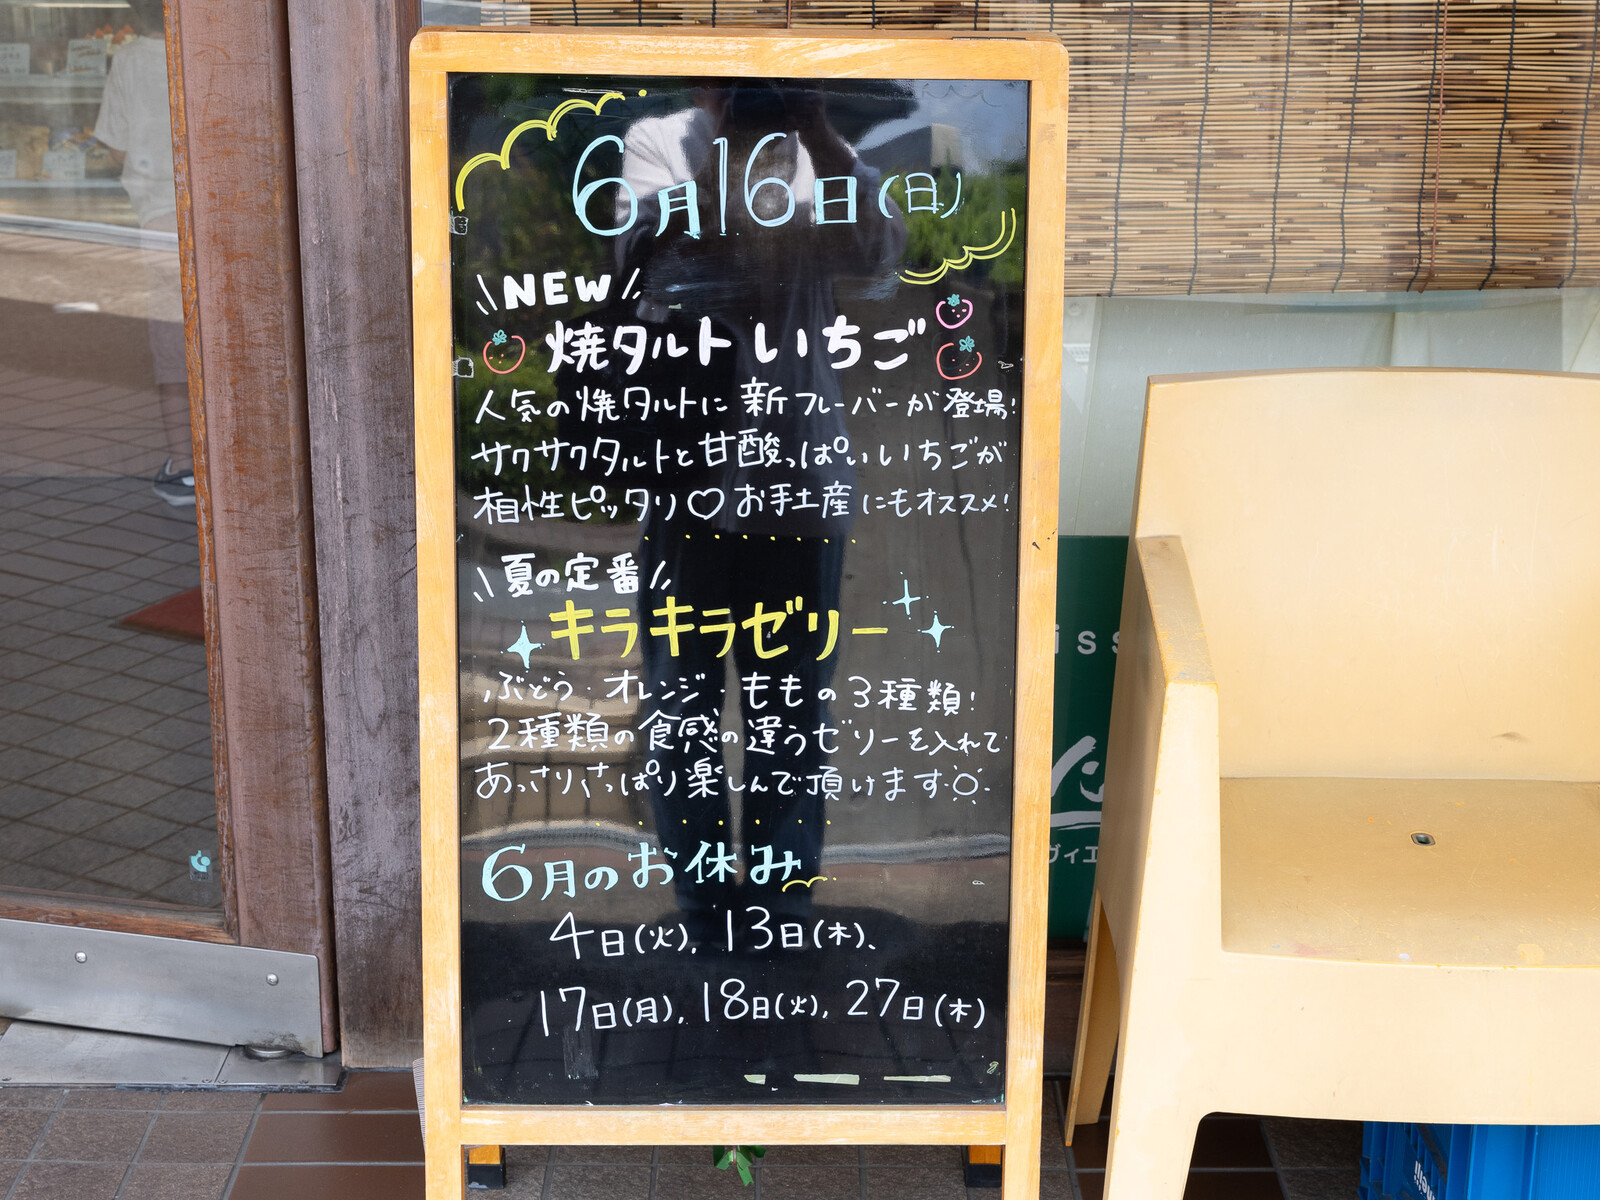 6月16日(日)
NEW
焼タルトいちご
人気の焼タルトに新フレーバーが登場!
サクサクタルトと甘酸っぱいいちごが
相性ピッタリ♡お手土産にもオススメ!
夏の定番
キラキラゼリー
ぶどう・オレンジ・ももの3種類!
2種類の食感の違うゼリーを入れて
あっさりさっぱり楽しんで頂けます
6月のお休み
4日(火)、13日(木)、
17日(月)、18日(火)、27日(木)
iss
ヴィエ